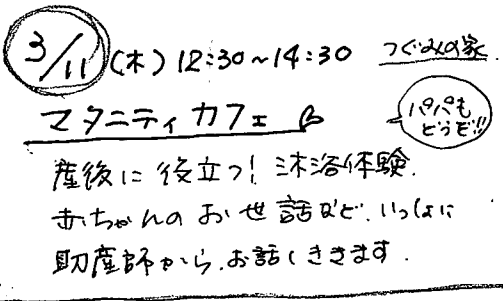 3/11 (木) 12:30~14:30 つぐみの家
マタニティカフェ
パパも
どうぞ!!
産後に役立つ! 沐浴体験.
赤ちゃんのお世話など、いっしょに
助産師から、お話しききます.